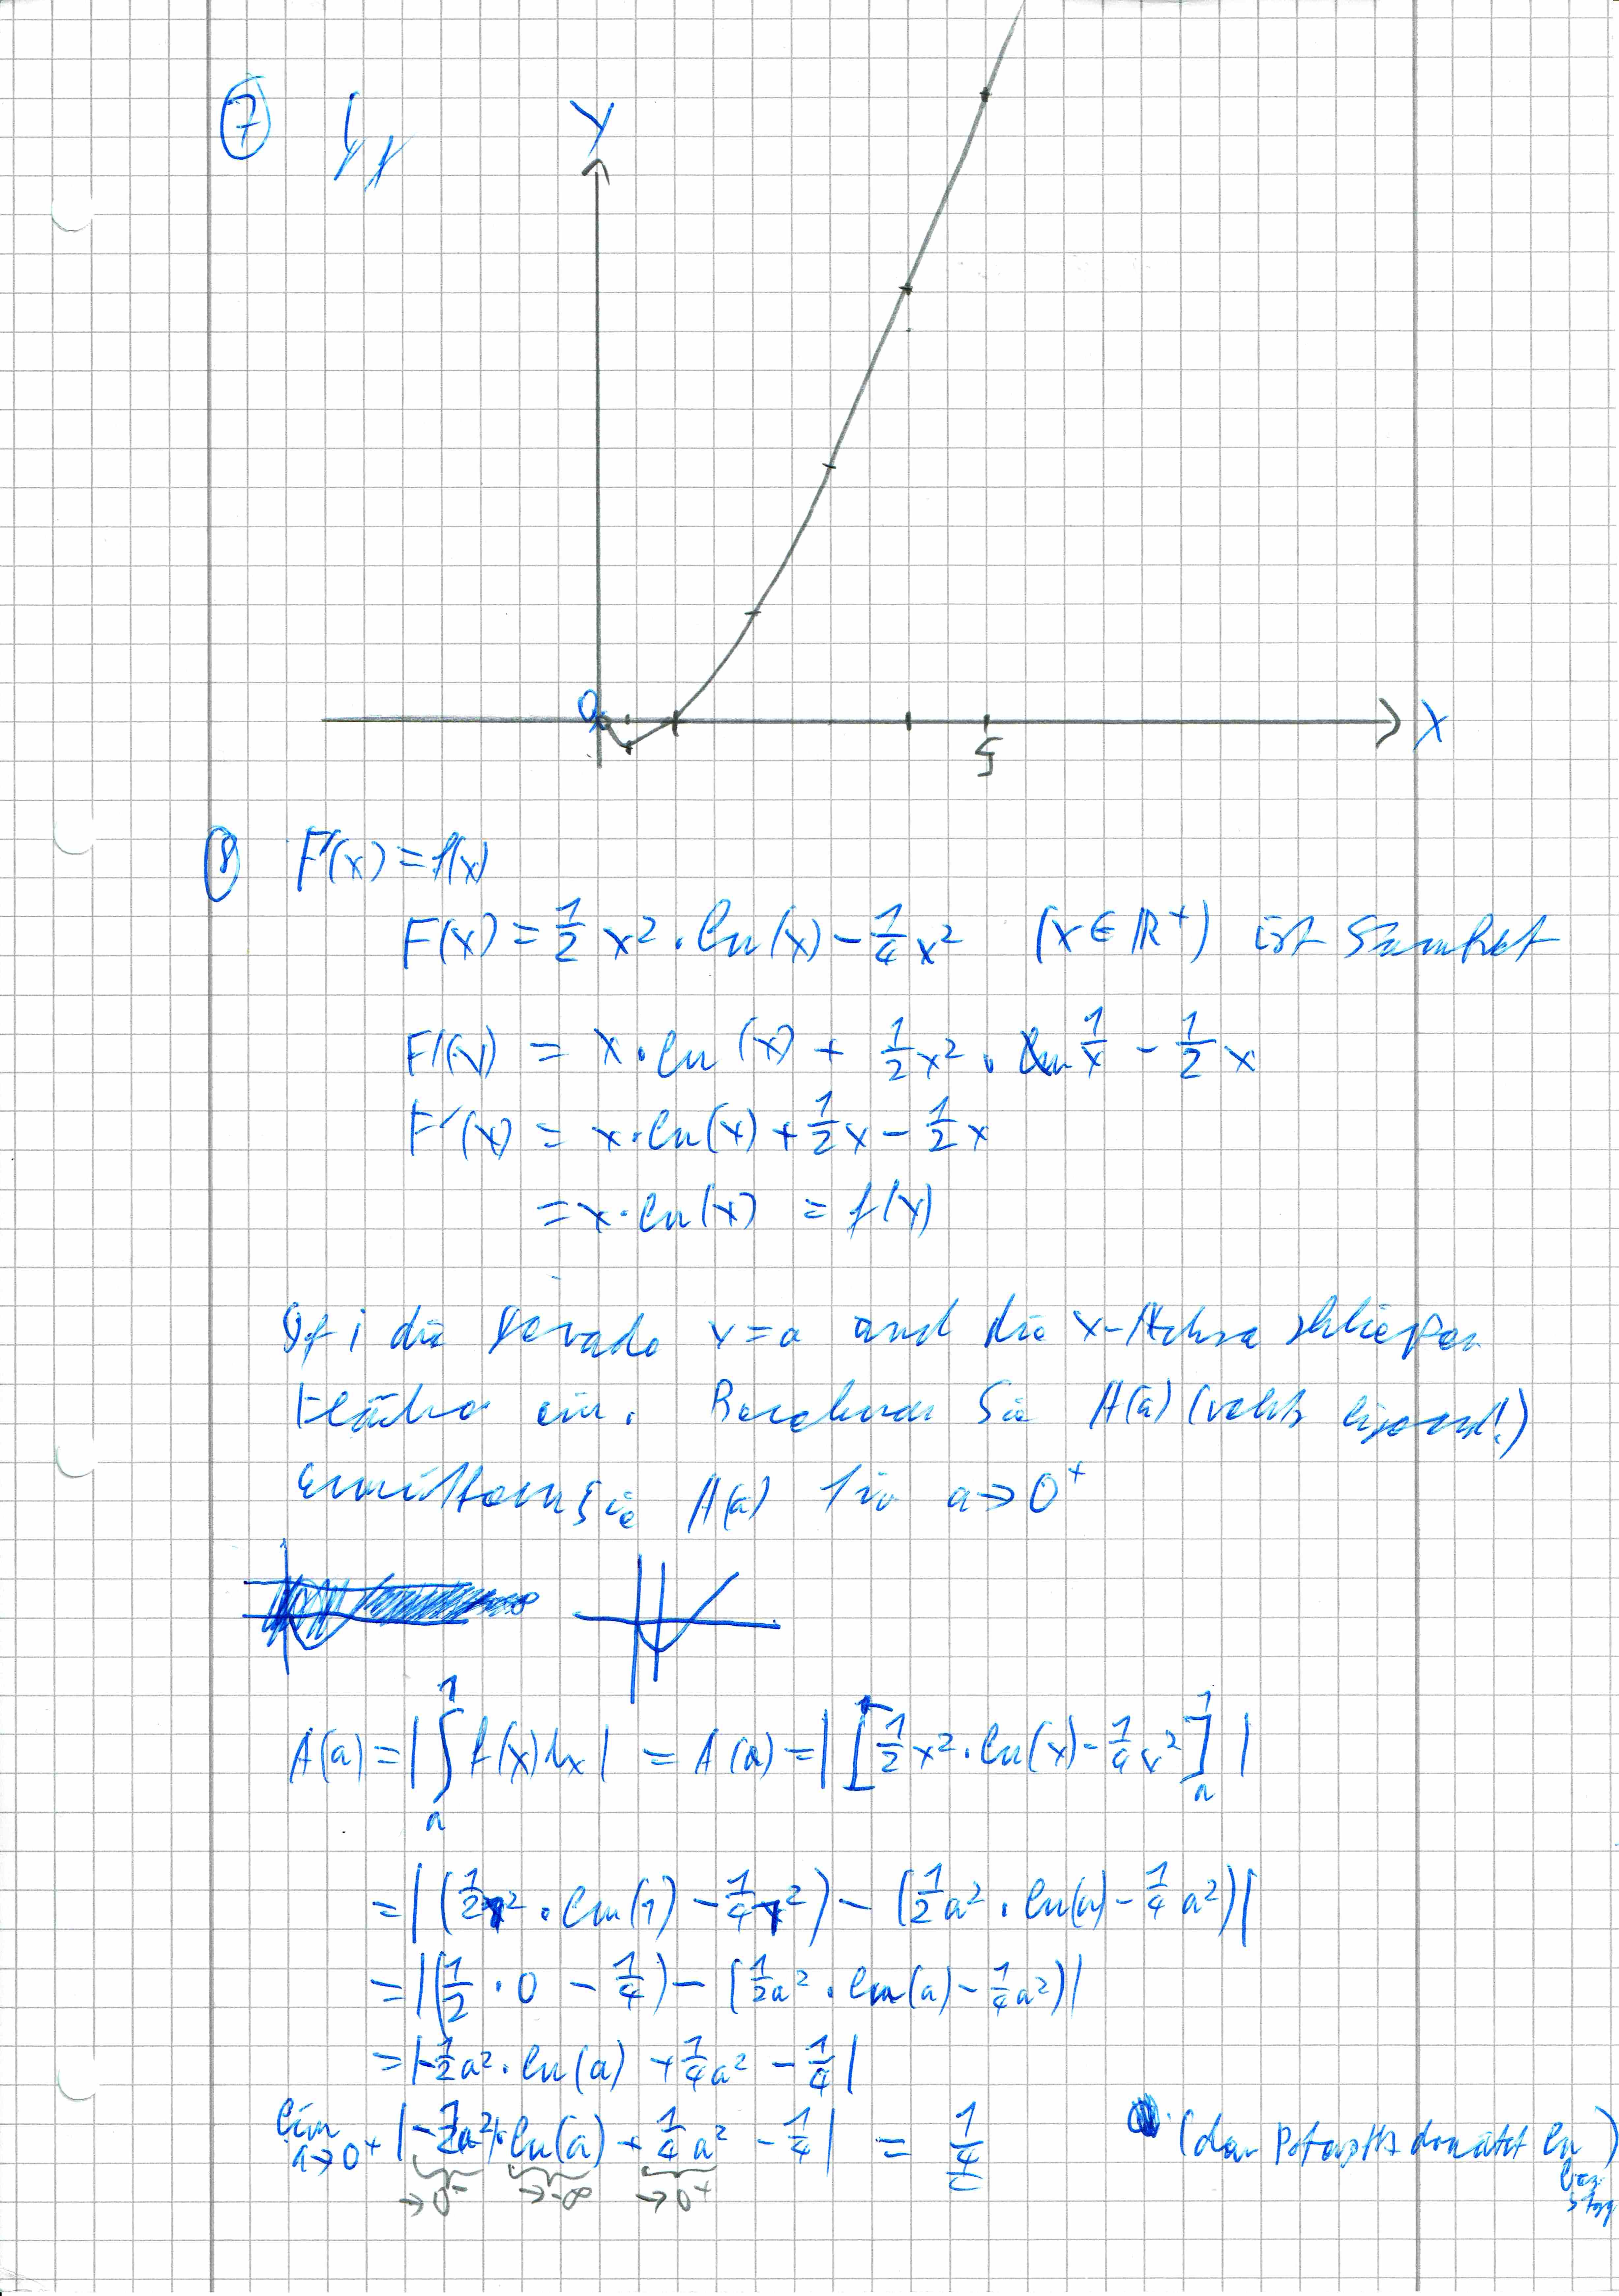 ⑦ Gf
Y
0
5
X
⑧ F'(x) = f(x)
F(x) = 1/2 x² · ln(x) - 1/4 x² (x ∈ ℝ⁺) ist
F'(x) = x · ln(x) + 1/2 x² · 1/x - 1/2 x
F'(x) = x · ln(x) + 1/2 x - 1/2 x
= x · ln(x) = f(x)
Gf, die Gerade x = a und die x-Achse schließen
Fläche ein. Berechnen Sie A(a) (
Sie A(a) für a → 0⁺
A(a) = |∫ₐ¹ f(x) dx| = A(a) = |[1/2 x² · ln(x) - 1/4 x²]ₐ¹|
= |(1/2 1² · ln(1) - 1/4 1²) - (1/2 a² · ln(a) - 1/4 a²)|
= |(1/2 · 0 - 1/4) - (1/2 a² · ln(a) - 1/4 a²)|
= |-1/2 a² · ln(a) + 1/4 a² - 1/4|
lim a→0⁺ |-1/2 a² · ln(a) + 1/4 a² - 1/4| = 1/4 (
→0⁻ →-∞ →0⁺